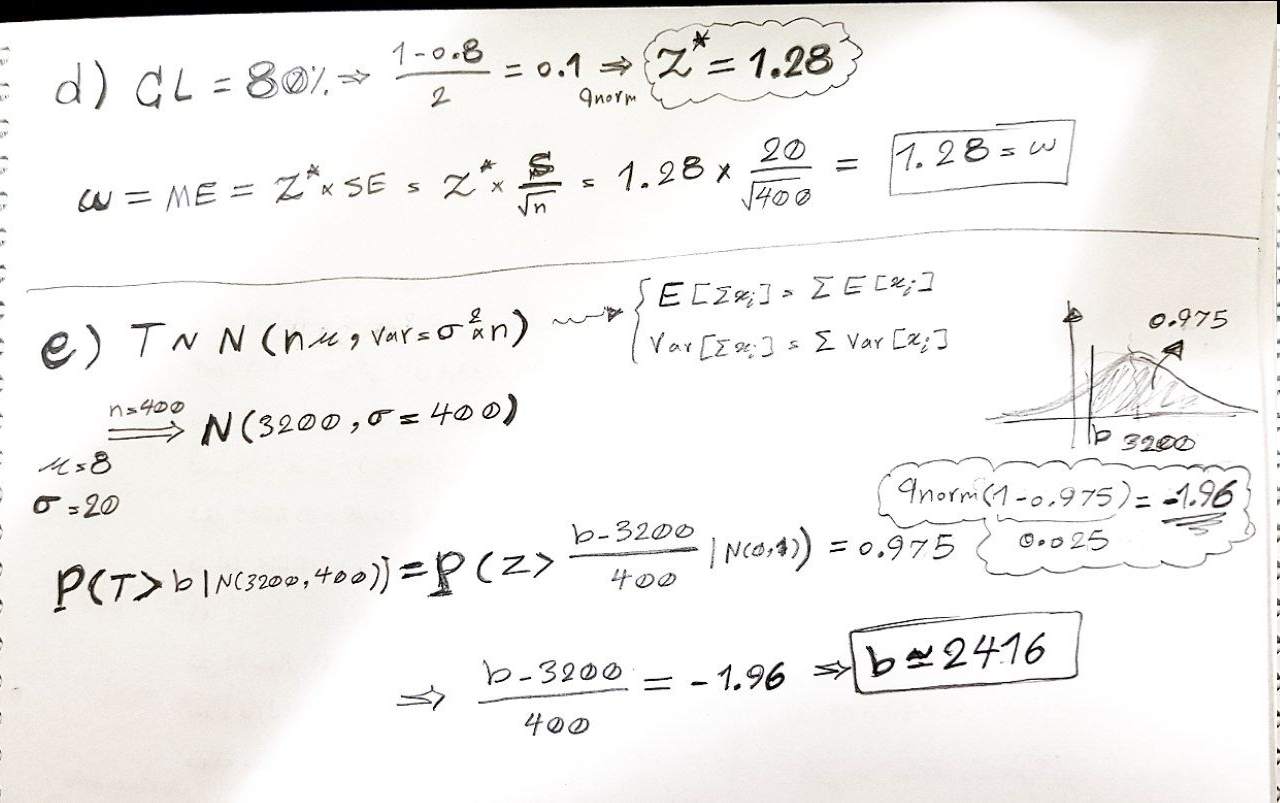 d) CL = 80% ⇒ (1-0.8)/2 = 0.1 ⇒ qnorm Z* = 1.28
w = ME = Z* × SE = Z* × S/√n = 1.28 × 20/√400 = 1.28 = w
e) T ~ N(nμ, var = σ² × n) → { E[Σxᵢ] = Σ E[xᵢ]
Var[Σxᵢ] = Σ Var[xᵢ]
0.975
n=400 ⇒ N(3200, σ = 400)
b 3200
μ=8
σ=20
qnorm(1-0.975) = -1.96
0.025
P(T > b | N(3200, 400)) = P(Z > (b-3200)/400 | N(0,1)) = 0.975
⇒ (b-3200)/400 = -1.96 ⇒ b ≃ 2416